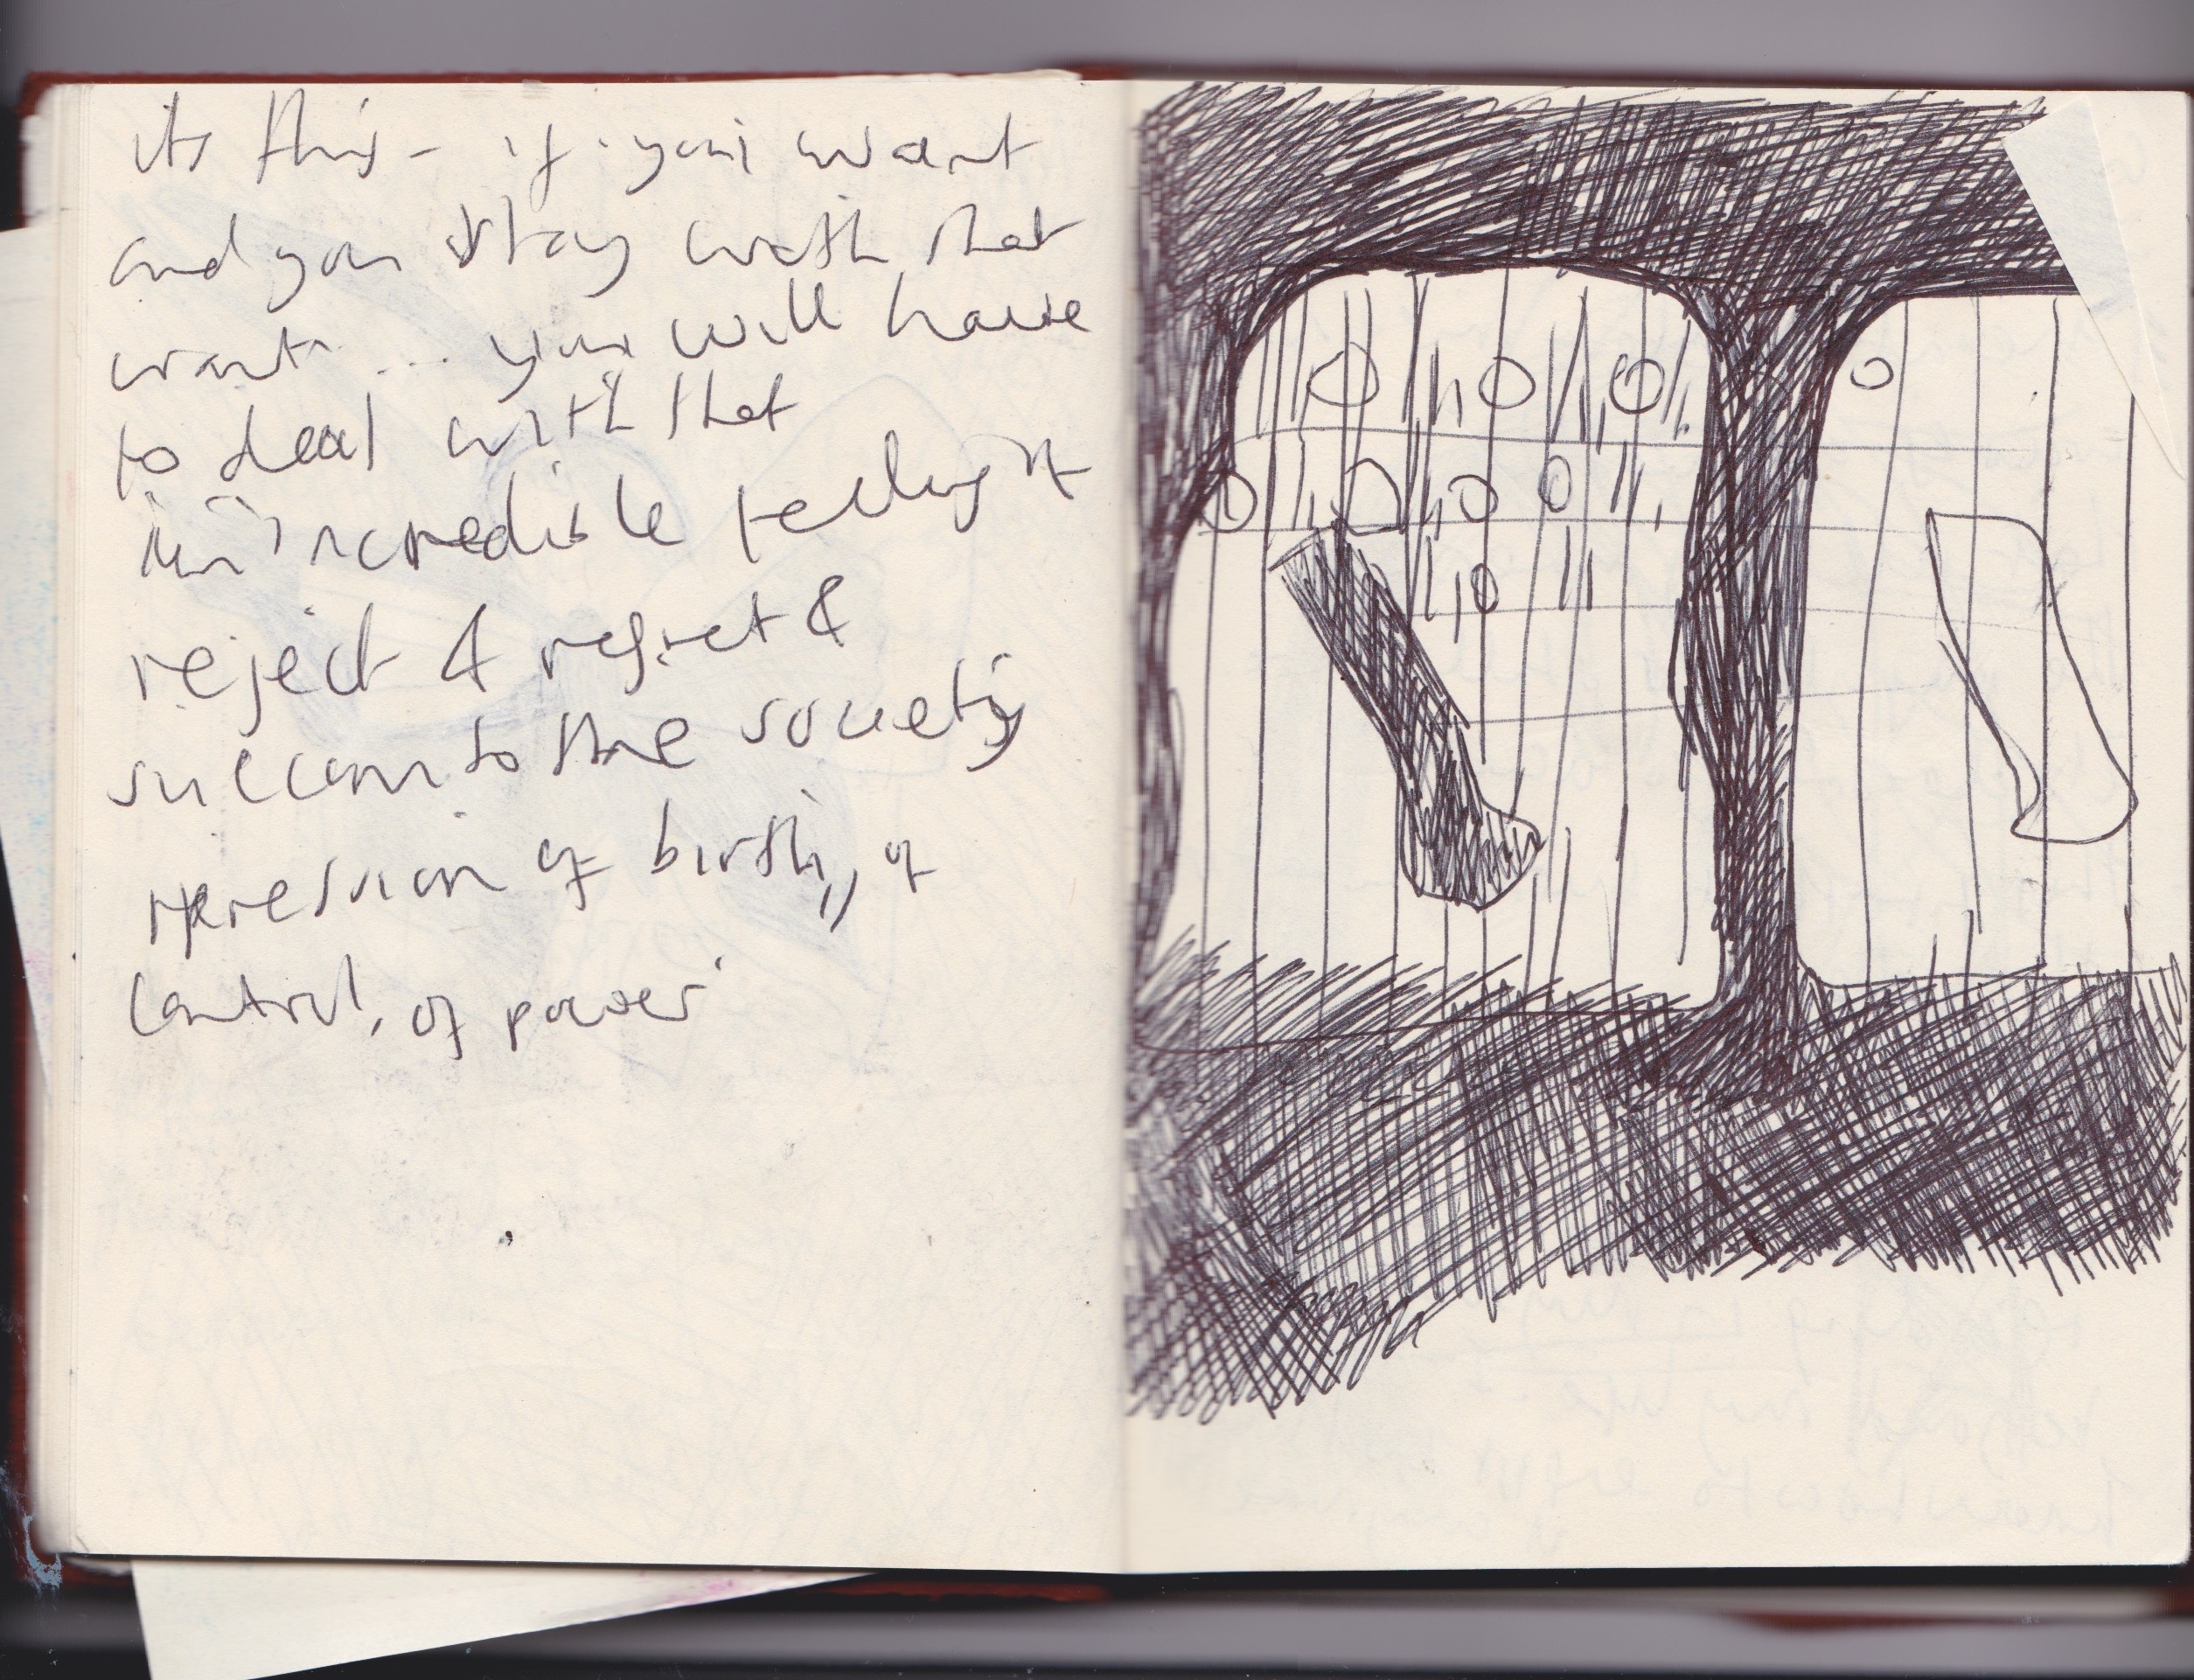 its this - if you want
and you stay with that
want ... you will have
to deal with that
incredible feeling of
reject & regret &
succum to the society
repression of birth, of
control, of power